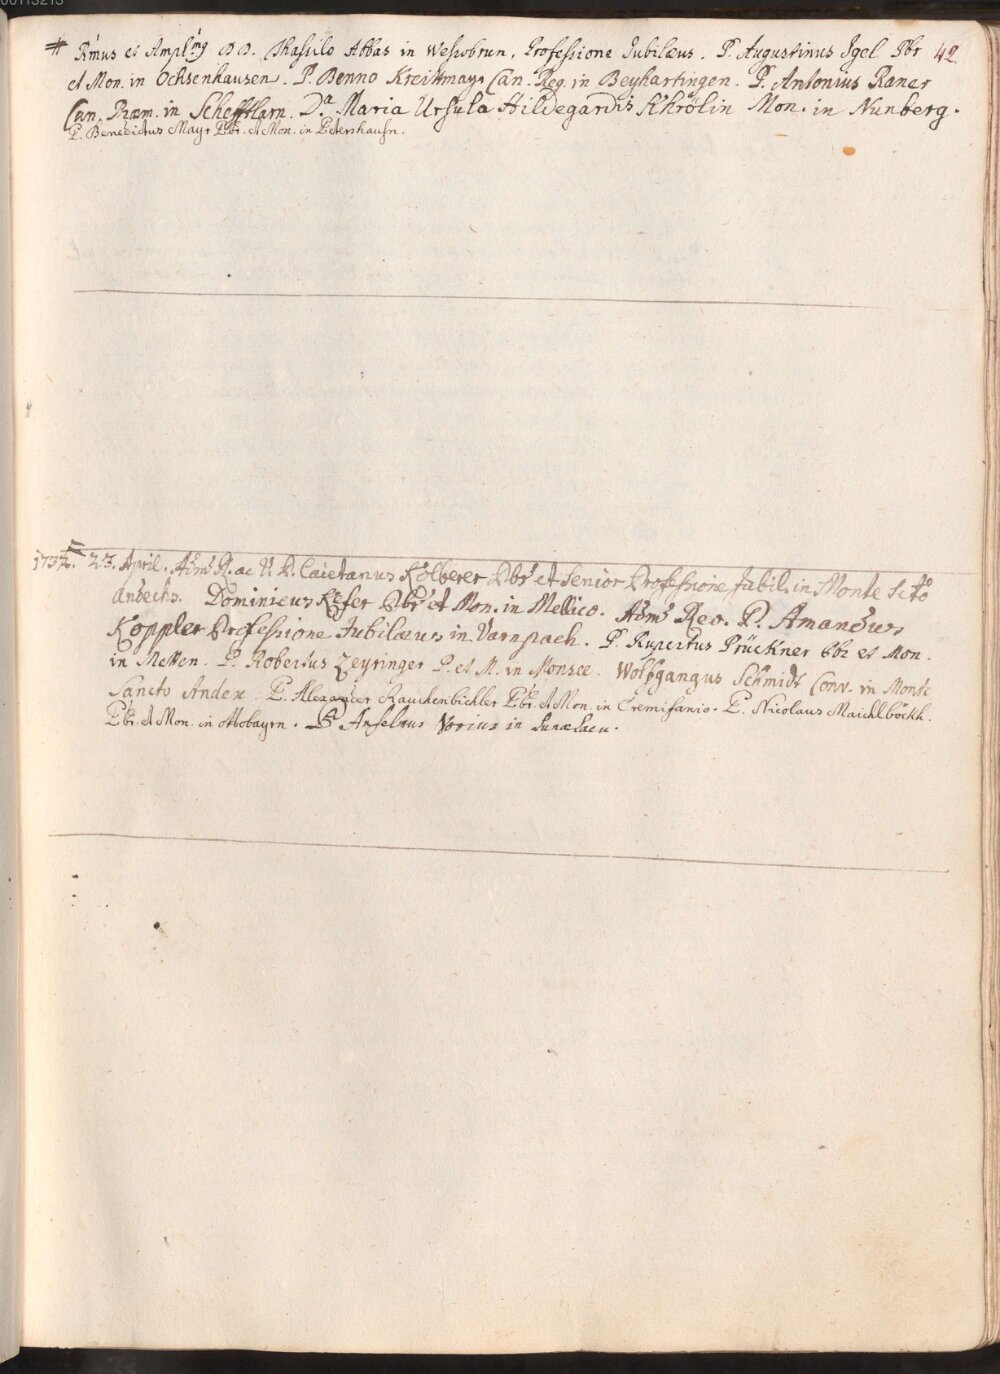 # Rm̃us et Ampl:mg DD. Thassilo Abbas in Wessobrun, Professione Jubilæus. P. Augustinus Igel Pbr 42
et Mon. in Ochsenhausen. P. Benno Kreittmayr Can. Reg. in Beyhartingen. P. Antonius Raner
Can. Præm. in Schefftlarn. Da. Maria Ursula Hildegardis Khrölin Mon. in Nunberg.
P. Benedictus Mayr Pbr. et Mon. in Petershausn.
1737. 23. April. Adm̃ R. ac V. P. Caietanus Kölberer Pbr̃ et Senior Professione Jubil. in Monte Scto
Andechs. Dominicus Kefer Pbr̃ et Mon. in Mellico. Adm̃ Rev. P. Amandus
Koppler Professione Jubilæus in Varnpach. P. Rupertus Prückner Pbr et Mon.
in Metten. P. Robertus Zeyringer P. et M. in Monsee. Wolfgangus Schmidt Conv. in Monte
Sancto Andex. P. Alexander Rauchenbichler Pbr. et Mon. in Cremifanio. P. Nicolaus Maichlböckh.
Pbr. et Mon. in Ottobayrn. P. Anselmus in Lunælacu.